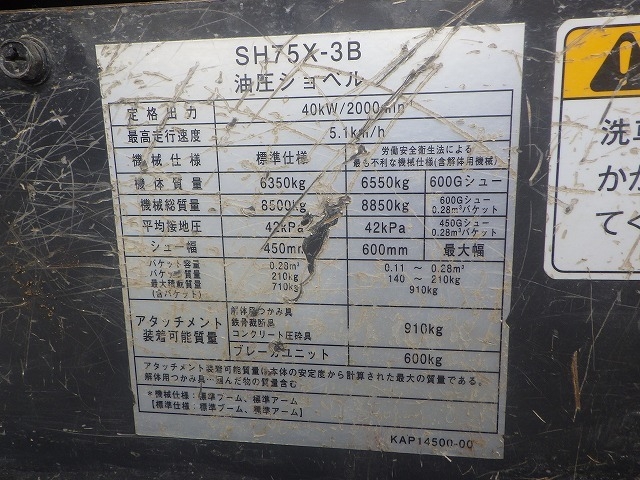 SH75X-3B
油圧ショベル
定格出力 40kW/2000min⁻¹
最高走行速度 5.1km/h
機械仕様 標準仕様 労働安全衛生法による
最も不利な機械仕様(含解体用機械)
機体質量 6350kg 6550kg 600Gシュー
機械総質量 8500kg 8850kg 600Gシュー
0.28m³バケット
平均接地圧 42kPa 42kPa 450Gシュー
0.28m³バケット
シュー幅 450mm 600mm 最大幅
バケット容量 0.28m³ 0.11 ~ 0.28m³
バケット質量 210kg 140 ~ 210kg
最大積載質量 710kg 910kg
(含バケット)
アタッチメント
装着可能質量
解体用つかみ具
鉄骨裁断具
コンクリート圧砕具
910kg
ブレーカユニット 600kg
アタッチメント装着可能質量は本体の安定度から計算された最大の質量である。
解体用つかみ具…掴んだ物の質量含む
*機械仕様:標準ブーム、標準アーム
[標準仕様:標準ブーム、標準アーム]
KAP14500-00
洗
か
てく